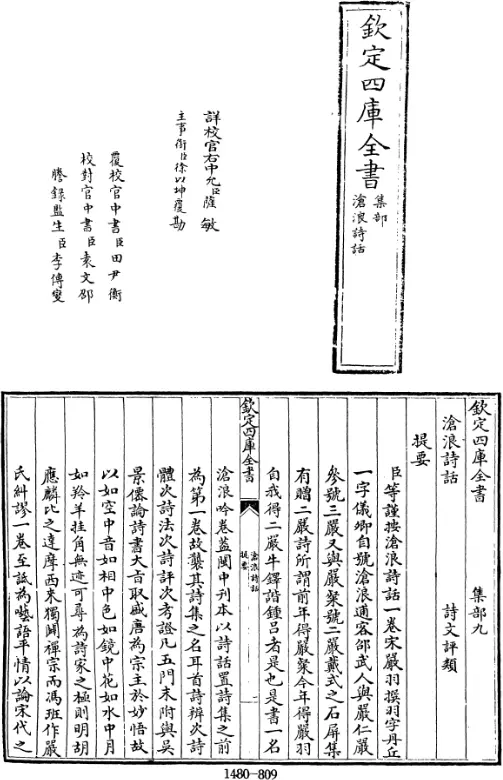 欽定四庫全書
集部
滄浪詩話
詳校官右中允臣薩敏
主事銜臣徐以坤覆勘
覆校官中書臣田尹衡
校對官中書臣袁文邵
謄錄監生臣李傳燮
欽定四庫全書 集部九
滄浪詩話 詩文評類
提要
臣等謹按滄浪詩話一卷宋嚴羽撰羽字丹丘
一字儀卿自號滄浪逋客邵武人與嚴仁嚴
參號三嚴又與嚴粲號二嚴戴式之石屏集
有贈二嚴詩所謂前年得嚴粲今年得嚴羽
自我得二嚴牛鐸諧鍾呂者是也是書一名
欽定四庫全書
滄浪詩話
提要
滄浪吟卷蓋閩中刊本以詩話置詩集之前
為第一卷故襲其詩集之名耳首詩辨次詩
體次詩法次詩評次考證凡五門末附與吳
景僊論詩書大旨取盛唐為宗主於妙悟故
以如空中音如相中色如鏡中花如水中月
如羚羊挂角無迹可尋為詩家之極則明胡
應麟比之達摩西來獨闢禪宗而馮班作嚴
氏糾謬一卷至詆為囈語平情以論宋代之
1480-809